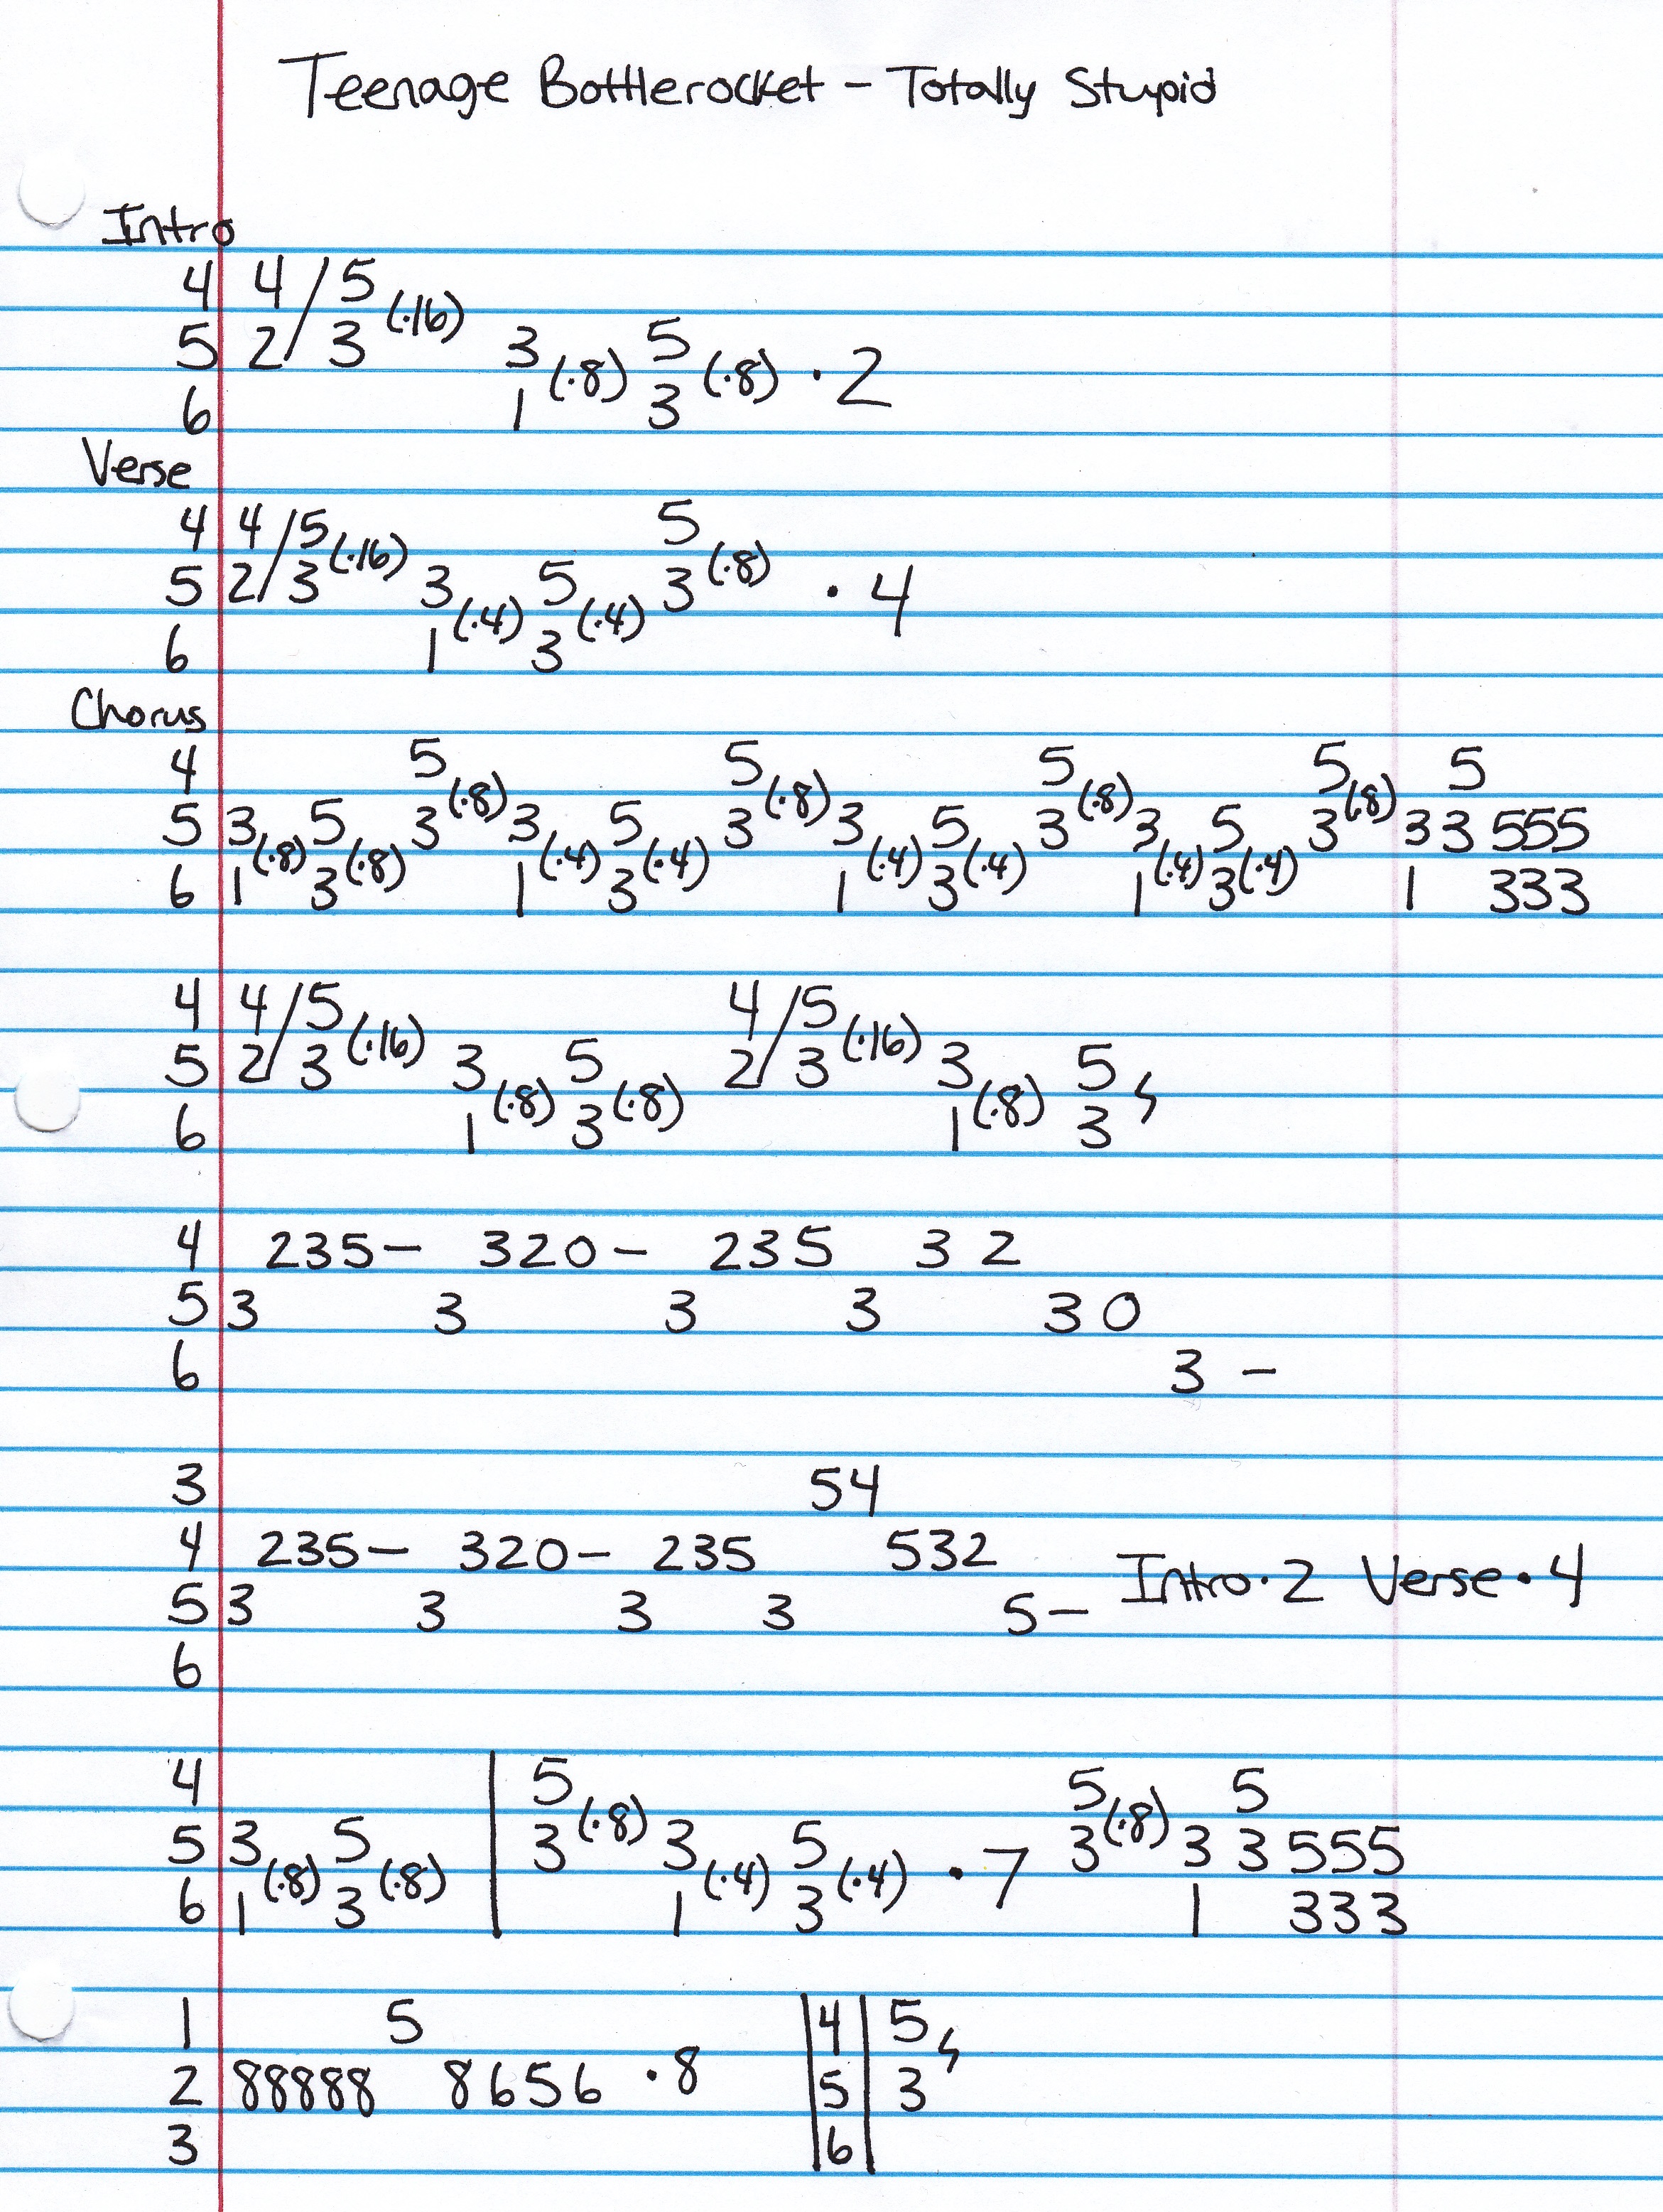 Teenage Bottlerocket - Totally Stupid
Intro
4 4/5 (·16) 5 · 2
5 2/3 3 (·8) 3 (·8)
6 1 3
Verse
4 4/5 (·16) 5 (·8)
5 2/3 3 (·4) 5 (·4) 3 · 4
6 1 3
Chorus
4 5 (·8) 5 (·8) 5 (·8) 5 (·8) 5
5 3 (·8) 5 (·8) 3 3 (·4) 5 (·4) 3 3 (·4) 5 (·4) 3 3 (·4) 5 (·4) 3 3 3 555
6 1 3 1 3 1 3 1 3 1 333
4 4/5 (·16) 4/5 (·16)
5 2/3 3 (·8) 5 (·8) 2/3 3 (·8) 5
6 1 3 1 3
4 235- 320- 235 32
5 3 3 3 3 30
6 3 -
3 54
4 235- 320- 235 532
5 3 3 3 3 5- Intro · 2 Verse · 4
6
4 5 (·8) 5 (·8) 5
5 3 (·8) 5 (·8) 3 3 (·4) 5 (·4) · 7 3 3 3 555
6 1 3 1 3 1 333
1 5 4 5
2 88888 8656 · 8 5 3
3 6